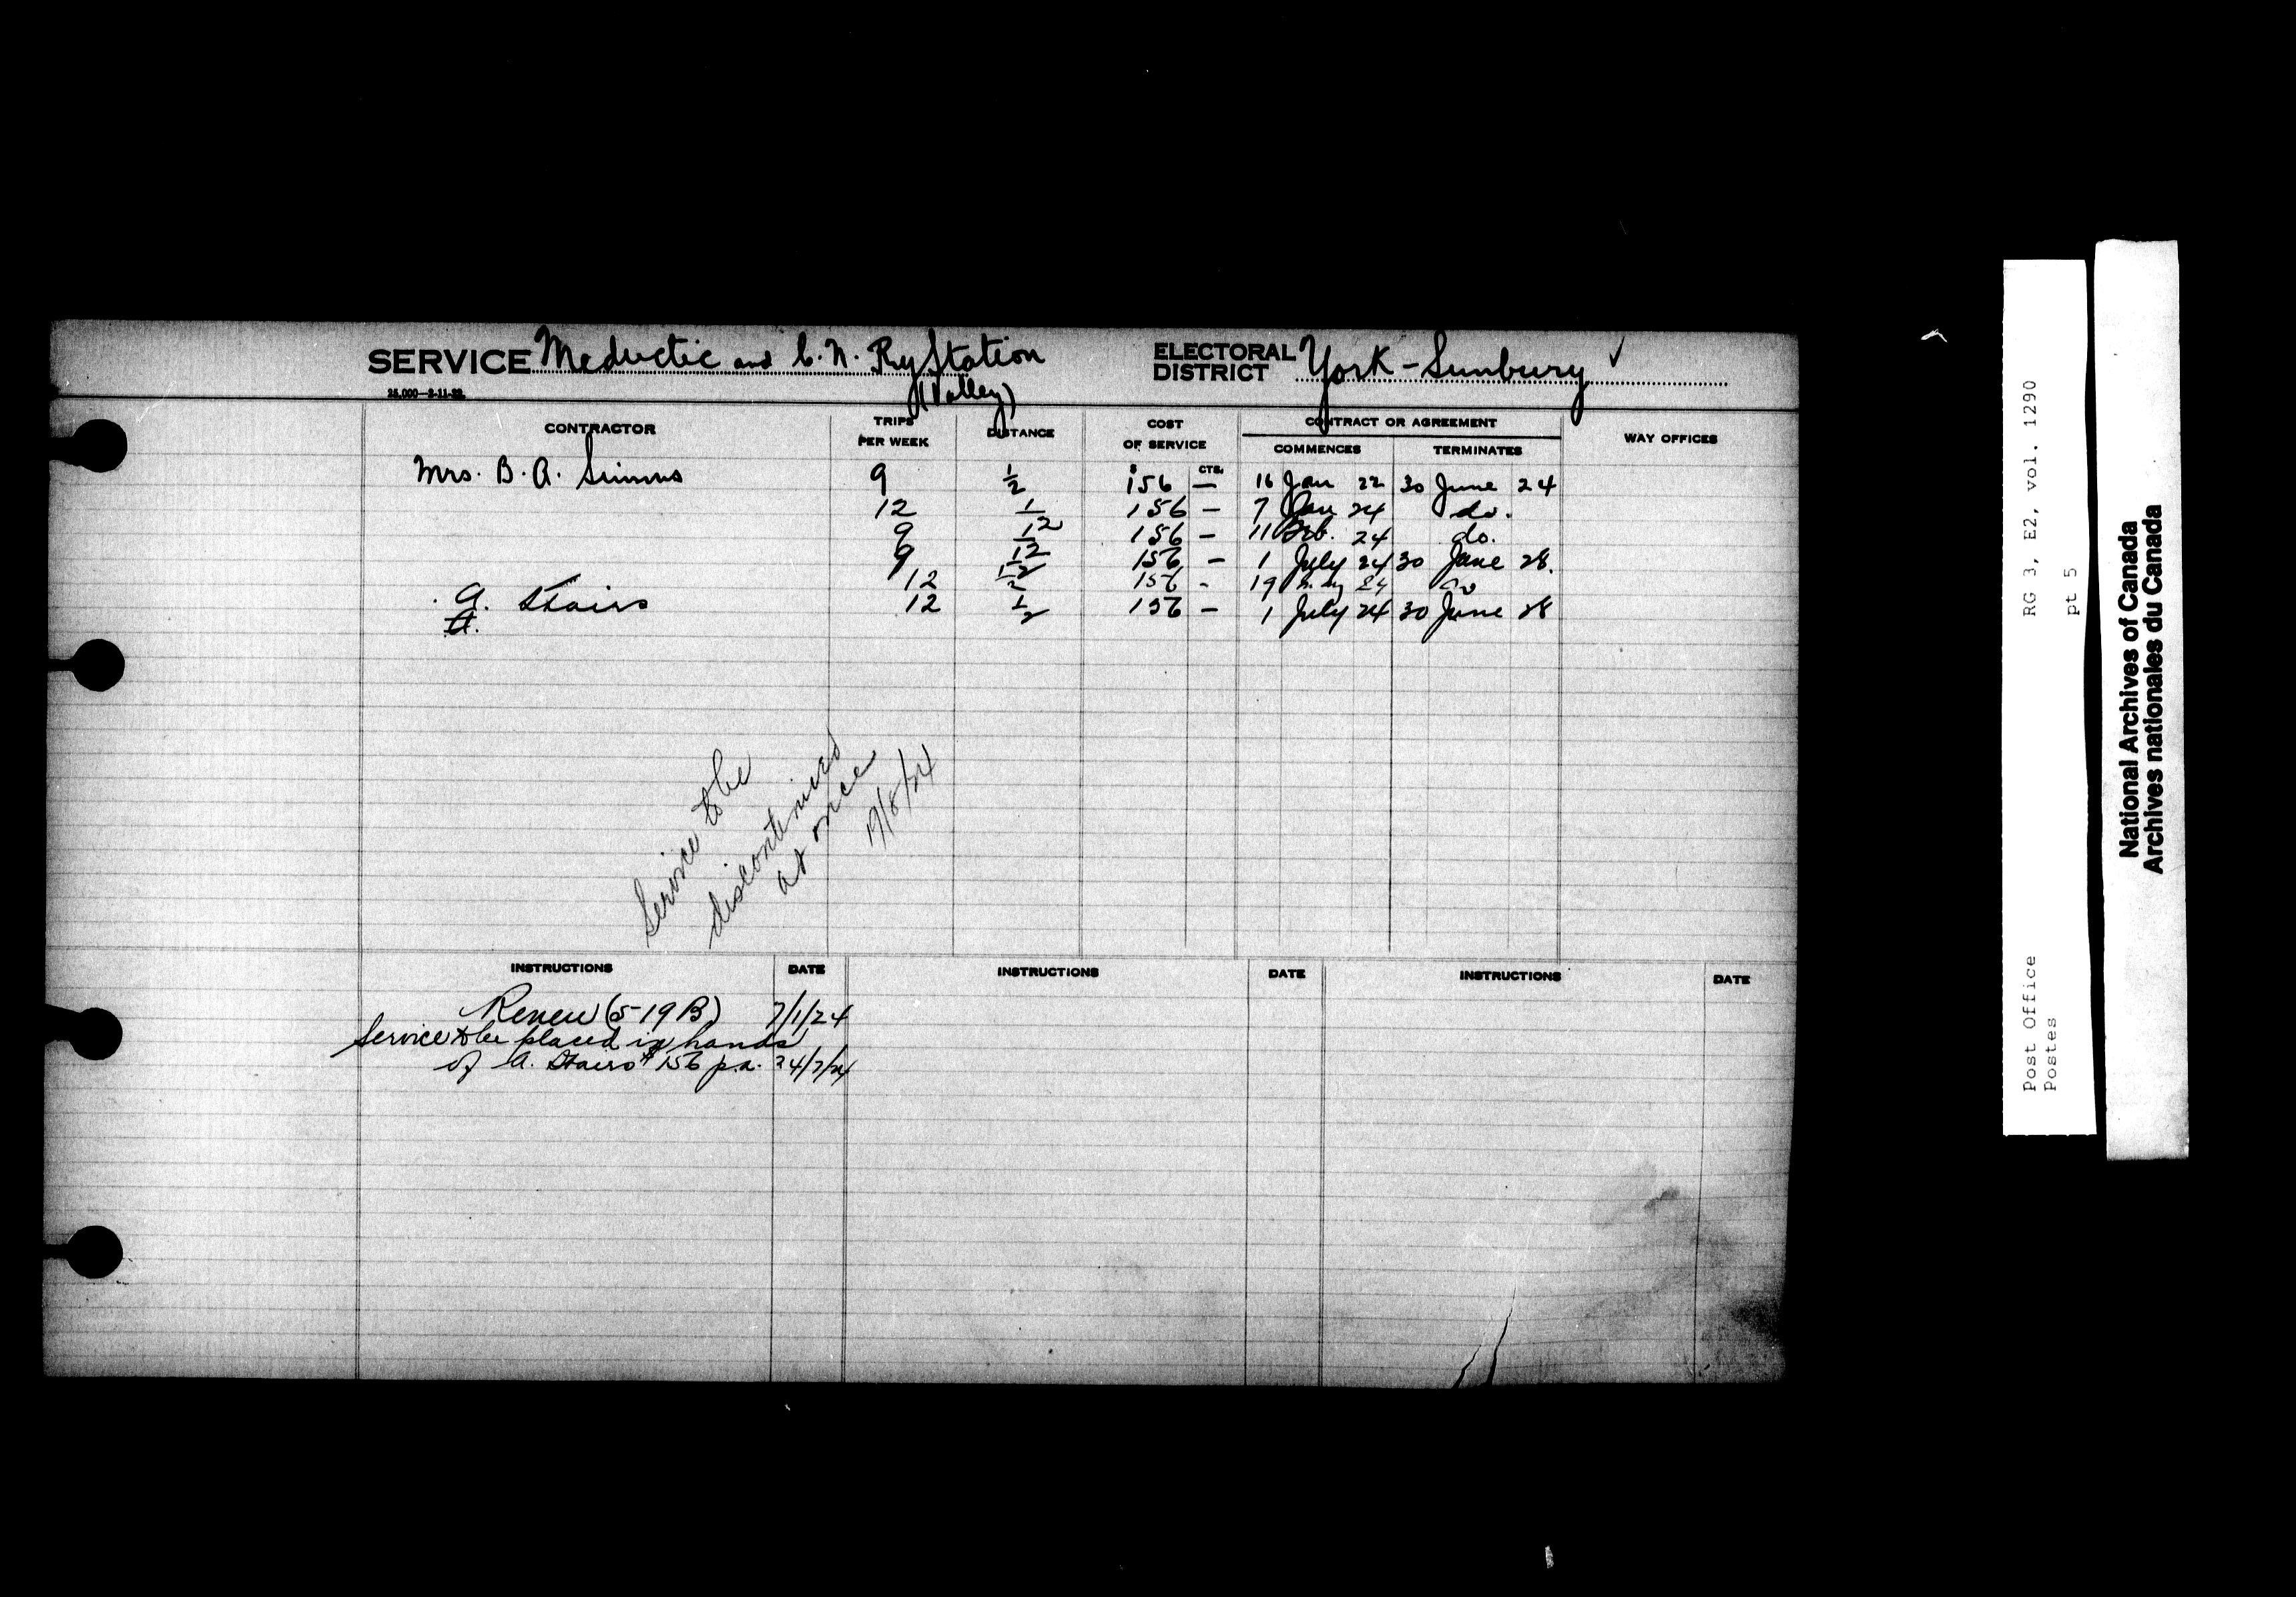 SERVICE Meductic and C. N. Ry Station ELECTORAL DISTRICT York - Sunbury ✓
(Valley)
25,000—2-11-22.
CONTRACTOR TRIPS PER WEEK DISTANCE COST OF SERVICE CONTRACT OR AGREEMENT WAY OFFICES
COMMENCES TERMINATES
$ CTS.
Mrs. B. A. Simms 9 1/2 156 — 16 Jan 22 30 June 24
12 1/2 156 — 7 Jan 24 do.
9 1/2 156 — 11 Feb. 24 do.
9 1/2 156 — 1 July 24 30 June 28.
12 1/2 156 - 19 24 do
A. Stairs 12 1/2 156 — 1 July 24 30 June 28
A.
Service to be
discontinued
at once
19/8/24
INSTRUCTIONS DATE INSTRUCTIONS DATE INSTRUCTIONS DATE
Renew (5-19 B) 7/1/24
Service to be placed in hands
of A. Stairs $156 p.a. 24/7/24
Post Office RG 3, E2, vol. 1290
Postes pt 5
National Archives of Canada
Archives nationales du Canada